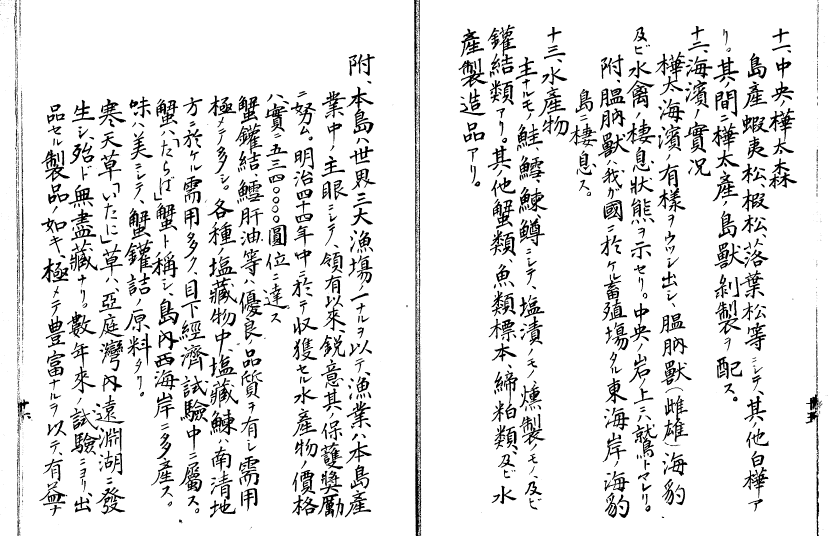 十一、中央樺太森
島産蝦夷松、椴松、落葉松等ニシテ、其ノ他白樺ア
リ。其ノ間ニ樺太産ノ鳥獣剥製ヲ配ス。
十二、海濱ノ實況
樺太海濱ノ有樣ヲウツシ出シ、膃肭獸(雌雄)海豹
及ビ水禽ノ棲息狀態ヲ示セリ。中央ノ岩ノ上ニハ鷲トマレリ。
附、膃肭獸ハ我ガ國ニ於ケル畜殖場タル東海岸ノ海豹
島ニ棲息ス。
十三、水産物
主ナルモノ鮭、鱈、鰊、鱒ニシテ、塩漬ノモノ、燻製ノモノ、及ビ
鑵結類アリ。其ノ他蟹類、魚類標本、締粕類、及ビ水
産製造品アリ。
廿五
附、本島ハ世界三大漁場ノ一ナルヲ以テ、漁業ハ本島産
業中ノ主眼ニシテ、領有以來鋭意其ノ保護奬勵
ニ努ム。明治四十四年中ニ於テ収獲セル水産物ノ價格
ハ、實ニ五三四〇〇〇〇圓位ニ達ス
蟹鑵結、鱈肝油等ハ優良ノ品質ヲ有シ需用
極メテ多シ。各種ノ塩藏物中、塩藏鰊ハ南清地
方ニ於ケル需用多ク、目下經濟試驗中ニ屬ス。
蟹ハ「たらば」蟹ト稱シ、島内西海岸ニ多産ス。
味ハ美ニシテ、蟹鑵詰ノ原料タリ。
寒天草「いたに」草ハ、亞庭灣内遠淵湖ニ發
生シ、殆ド無盡藏ナリ。數年來ノ試驗ニヨリ出
品セル製品ノ如キ、極メテ豊富ナルヲ以テ、有益ナ
廿六